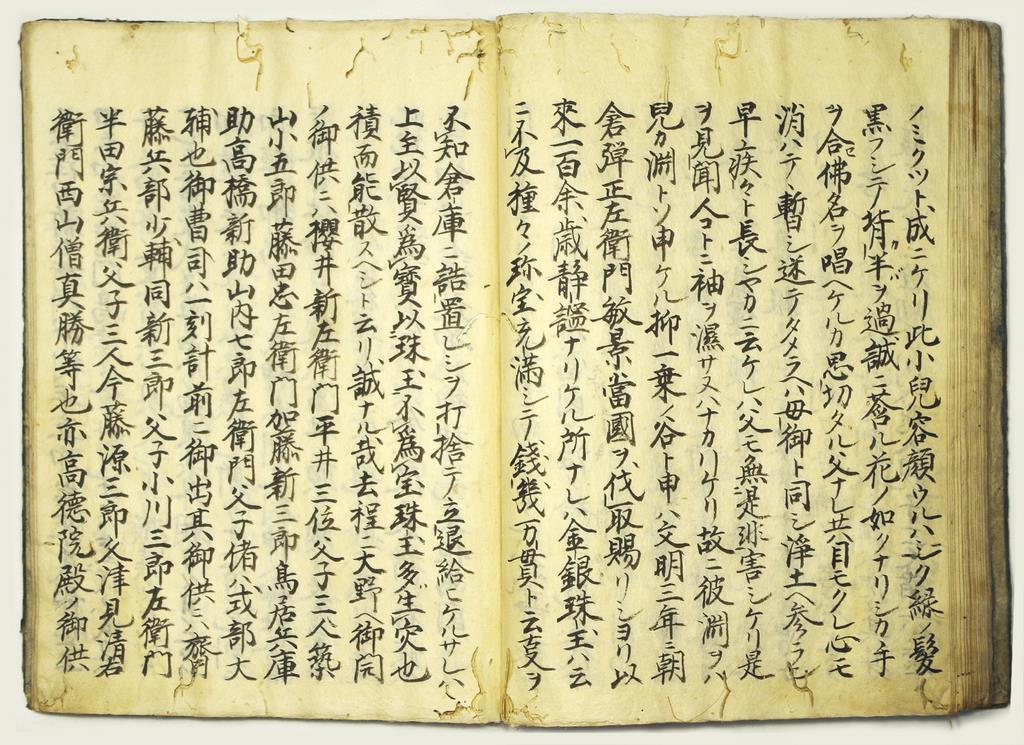 ノミクツト成ニケリ此小兒容顔ウルハシク緑ノ髪
黒フシテ背半ヲ過誠ニ蒼ル花ノ如クナリシカ手
ヲ合佛名ヲ唱ヘケルカ思切タル父ナレ共目モクレ心モ
消ハテ暫シ迷テタタラヘハ母御ト同シ淨土ヘ参ラヒ
早疾々ト長シヤカニ云ケレハ父モ無是非害シケリ是
ヲ見聞人コトニ袖ヲ濕サヌハナカリケリ故ニ彼淵ヲハ
兒カ淵トソ申ケル抑一乗ノ谷ト申ハ文明三年ニ朝
倉彈正左衛門敏景當國ヲ伐取賜リシヨリ以
來一百余歳静謐ナリケル所ナレハ金銀珠玉ハ云
ニ不及種々ノ珎宝充満シテ錢幾万貫ト云支ヲ
不知倉庫ニ誥置レシヲ打捨テ立退給ヒケルサレハ
上至以賢為寳以珠玉不為宝珠玉多生穴也
積而能散スヘシト云リ誠ナル哉去程ニ大野ヘ御同
ノ御供ニハ櫻井新左衛門平井三位父子三人築
山小五郎藤田忠左衛門加藤新三郎鳥居兵庫
助高橋新助山内七郎左衛門父子偖ハ式部大
輔也御曹司ハ一刻計前ニ御出其御供ニハ
藤兵部少輔同新三郎父子小川三郎左衛門
半田宗兵衛父子三人今藤源三郎久津見清右
衛門西山僧真勝等也亦高徳院殿ノ御供